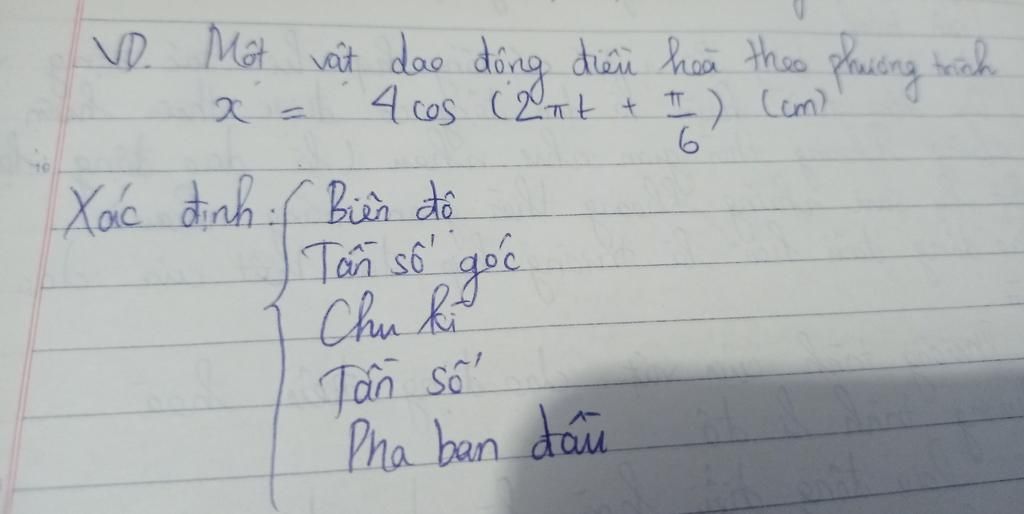 VD. Một vật dao động điều hoà theo phương trình
x = 4 cos (2πt + π/6) (cm)
Xác định: { Biên độ
Tần số góc
Chu kì
Tần số
Pha ban đầu